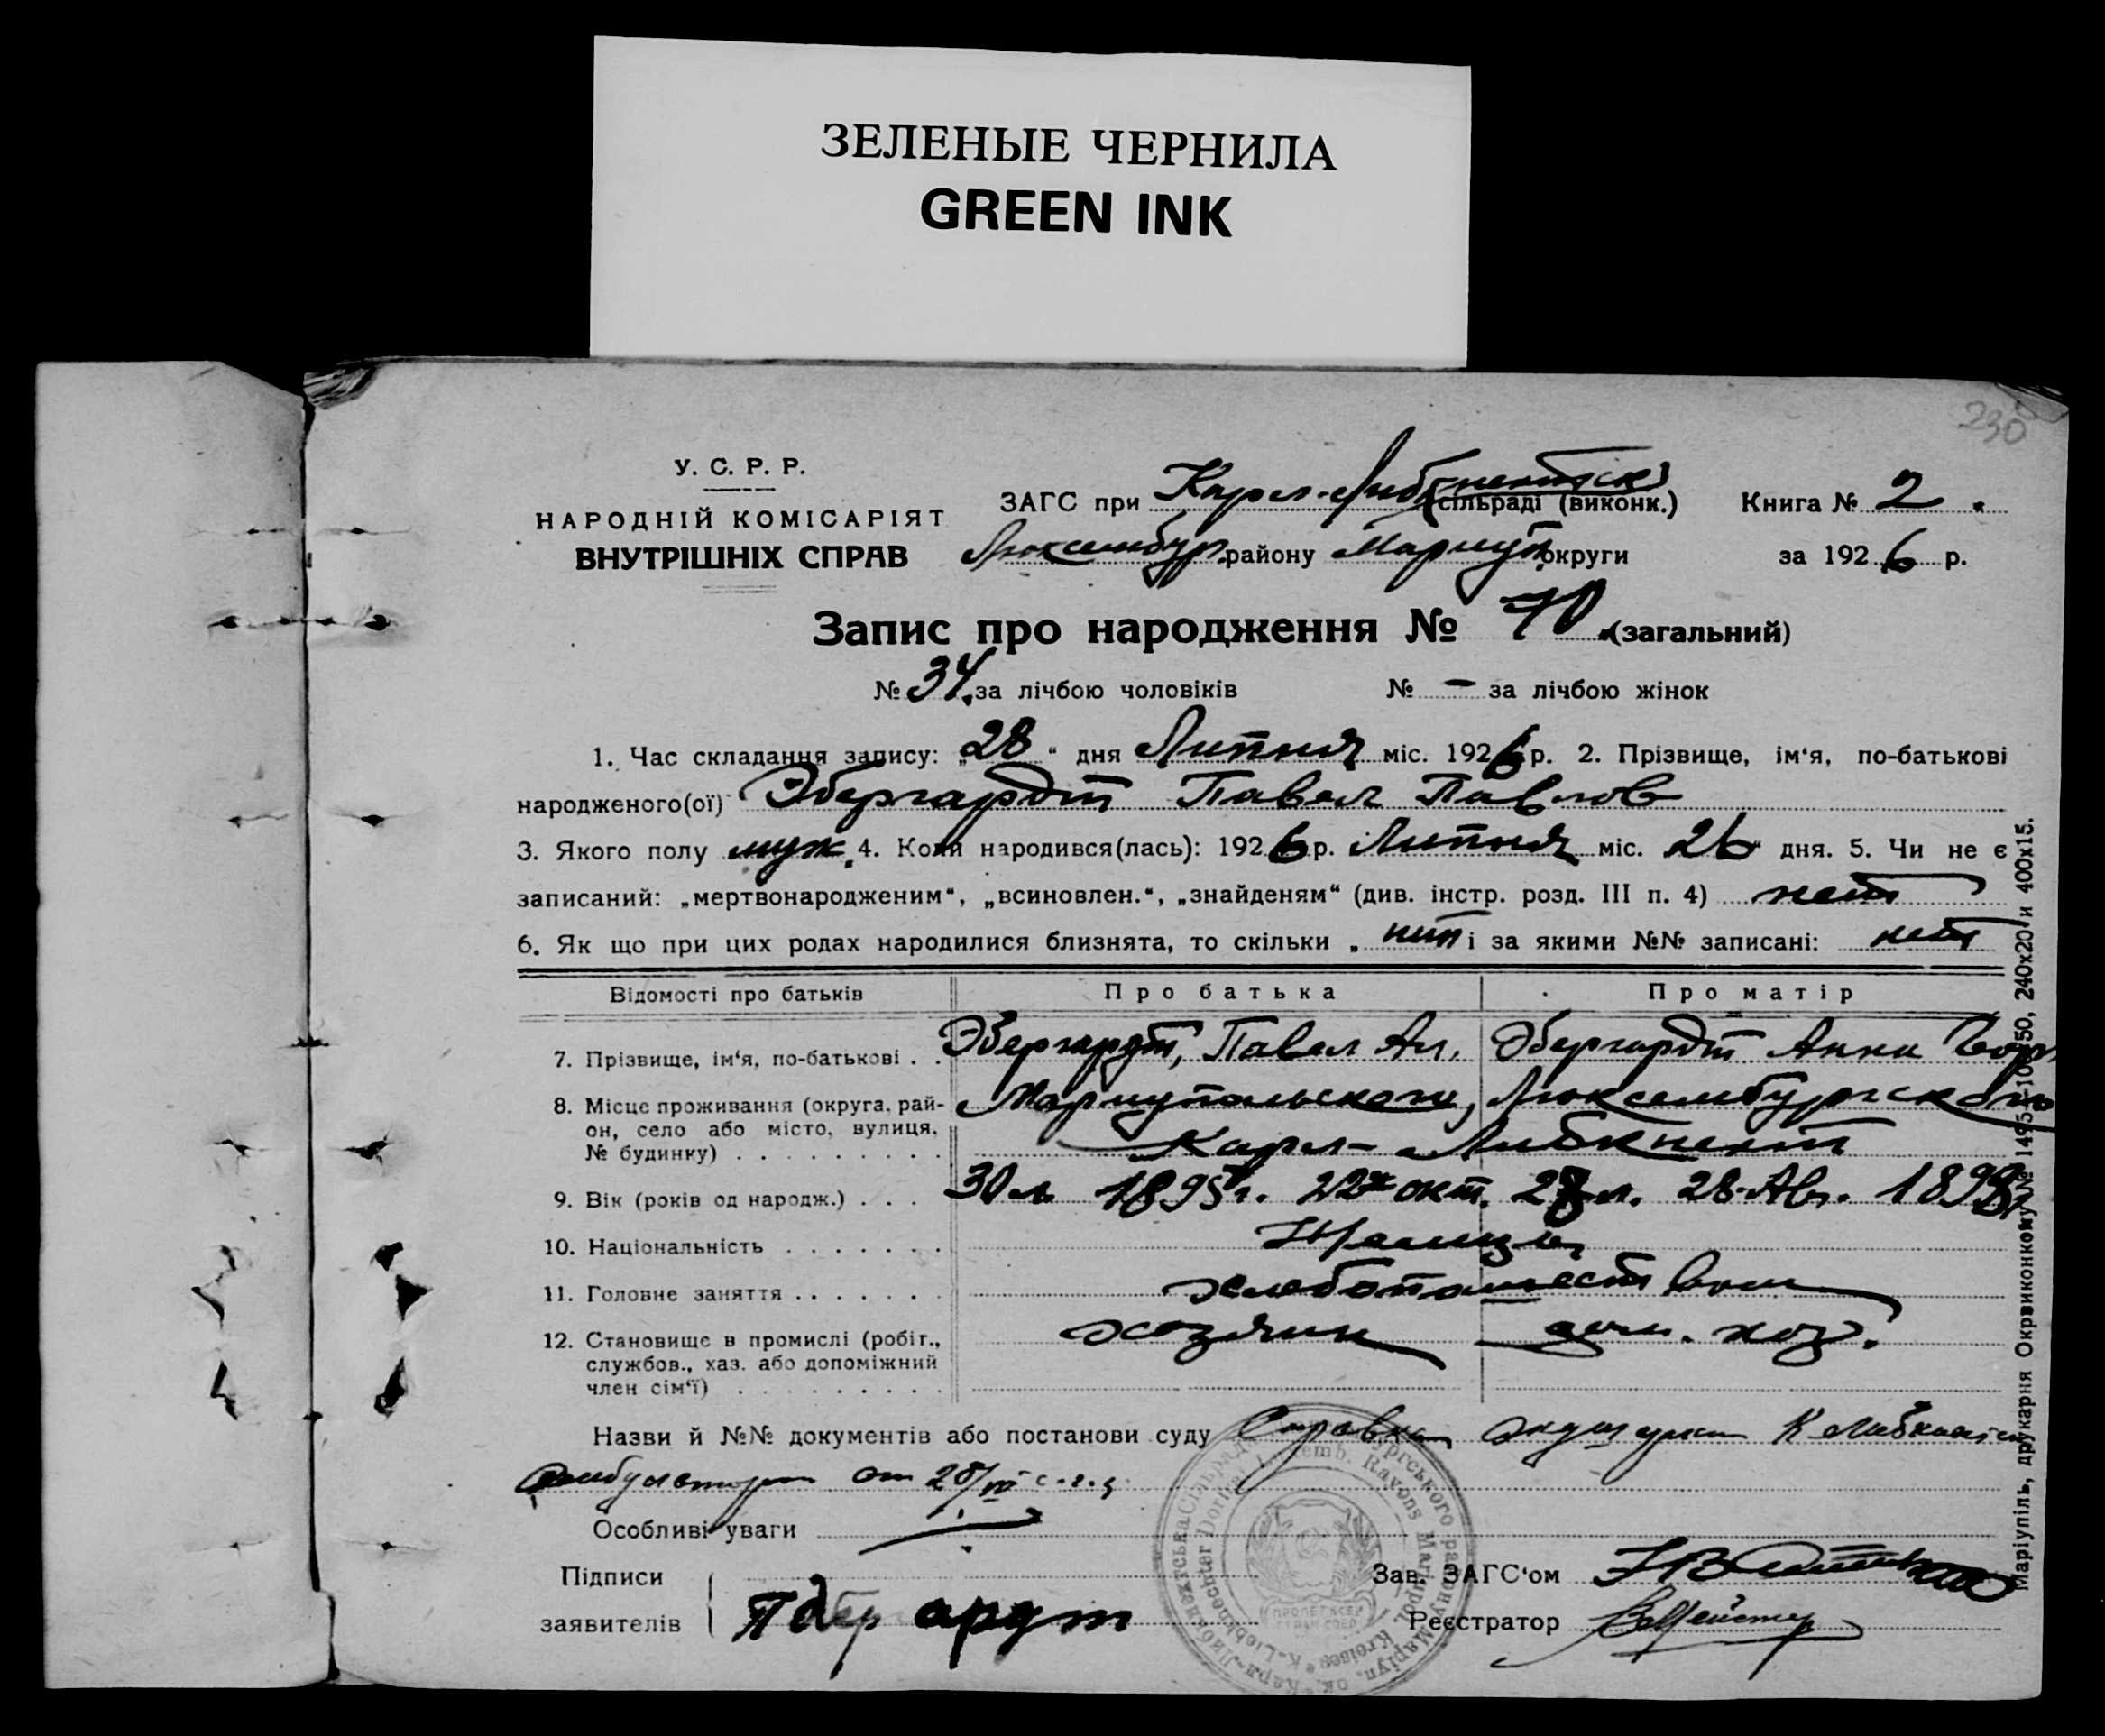 ЗЕЛЕНЫЕ ЧЕРНИЛА
GREEN INK
230
У. С. Р. Р.
НАРОДНІЙ КОМІСАРІЯТ
ВНУТРІШНІХ СПРАВ
ЗАГС при Карл-Либкнехтск (сільраді (виконк.) Книга № 2
Люксембур. району Мариуп. округи за 1926 р.
Запис про народження № 70 (загальний)
№ 34 за лічбою чоловіків № — за лічбою жінок
1. Час складання запису: „28“ дня Липня міс. 1926 р. 2. Прізвище, ім‘я, по-батькові
народженого(ої) Эбергардт Павел Павлов
3. Якого полу муж. 4. Коли народився(лась): 1926 р. Липня міс. 26 дня. 5. Чи не є
записаний: „мертвонародженим“, „всиновлен.“, „знайденям“ (див. інстр. розд. III п. 4) нет
6. Як що при цих родах народилися близнята, то скільки „ нет і за якими №№ записані: нет
Відомості про батьків Про батька Про матір
7. Прізвище, ім‘я, по-батькові . . Эбергардт, Павел Ал. Эбергардт Анна
8. Місце проживання (округа, рай-
он, село або місто, вулиця,
№ будинку) Мариупольского, Люксембургского
Карл-Либкнехт
9. Вік (років од народж.) . . . 30 л 1895 г. 22 окт. 28 л. 28 Авг.
10. Національність Немцы
11. Головне заняття хлебопашеством
12. Становище в промислі (робіт.,
службов., хаз. або допоміжний
член сім‘ї) хозяин дом. хоз.
Назви й №№ документів або постанови суду Справка акушерки К Либкнехтск
амбулатории от 28/VII с.г.
Особливі уваги
Підписи
заявителів П Эбергардт
Зав. ЗАГС‘ом
Реєстратор
Маріупіль, друкарня Окрвиконкому № 1495—10050, 240х20 и 400х15.